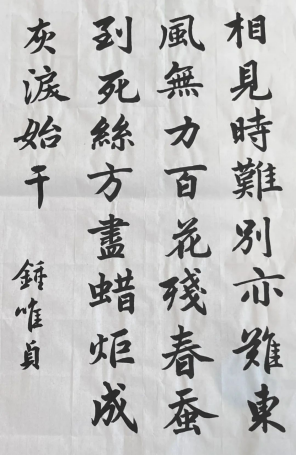 相見時難別亦難東
風無力百花殘春蚕
到死絲方盡蜡炬成
灰淚始干
鍾唯貞